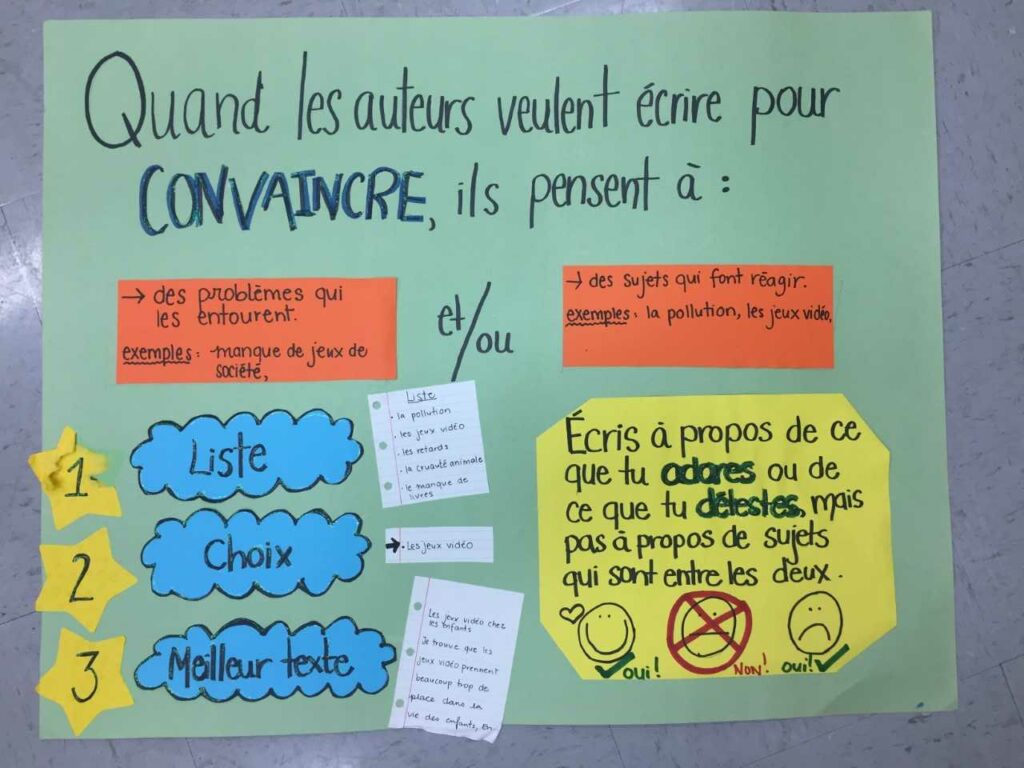 Quand les auteurs veulent écrire pour
CONVAINCRE, ils pensent à :
→ des problèmes qui
les entourent.
exemples : -manque de jeux de
société,
et/ou
→ des sujets qui font réagir.
exemples : la pollution, les jeux vidéo,
1
Liste
Liste
• la pollution
• les jeux vidéo
• les retards
• la cruauté animale
• le manque de
livres
2
Choix
→ • Les jeux vidéo
3
Meilleur texte
Les jeux vidéo chez
les enfants
Je trouve que les
jeux vidéo prennent
beaucoup trop de
place dans la
vie des enfants, En
Écris à propos de ce
que tu adores ou de
ce que tu détestes, mais
pas à propos de sujets
qui sont entre les deux.
oui!
NON!
oui!